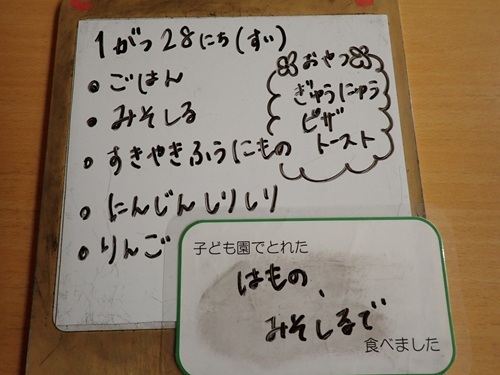 1がつ28にち(すい)
・ごはん
・みそしる
・すきやきふうにもの
・にんじんしりしり
・りんご
おやつ
ぎゅうにゅう
ピザ
トースト
子ども園でとれた
はもの、
みそしるで
食べました